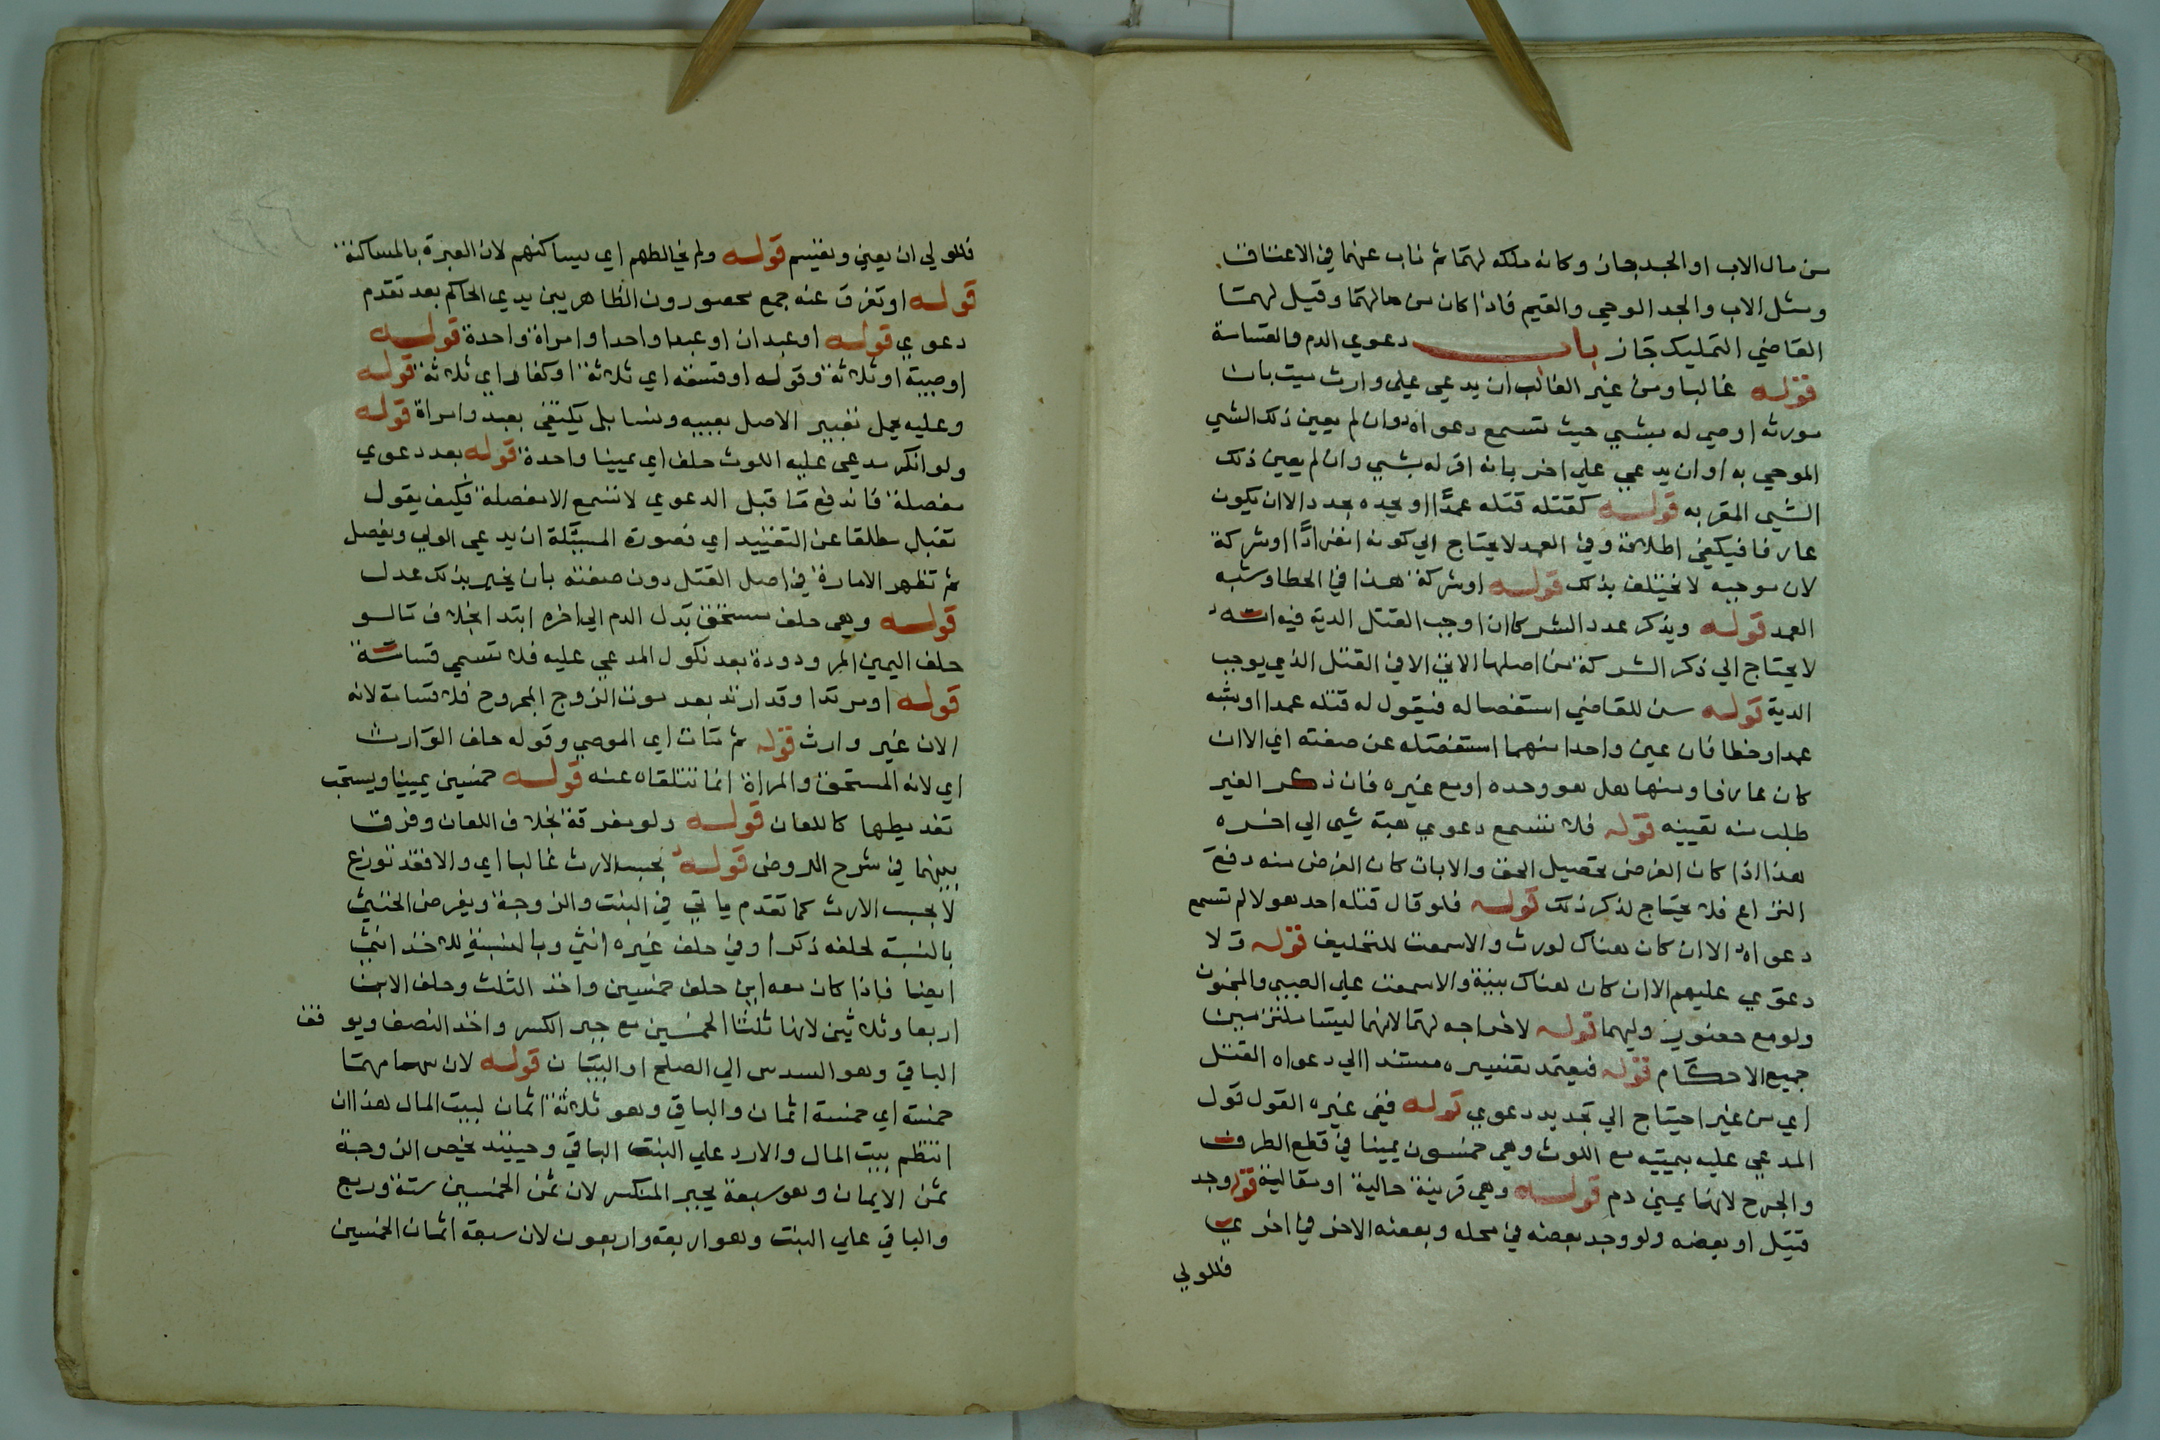 من مال الاب او الجد جاز وكانه ملكه لهما ثم ناب عنهما في الاعتاق
ومثل الاب والجد الوصي والقيم فاذا كان من مالهما وقبل لهما
القاضي التمليك جاز باب دعوي الدم والقسامة
قوله غالبا ومن غير الغالب ان يدعي علي وارث ميت بان
مورثه اوصي له بشي حيث تسمع دعواه وان لم يعين ذلك الشي
الموصي به او ان يدعي علي اخر بانه اقر له بشي وان لم يعين ذلك
الشي المقر به قوله كقتله قتله عمدا او يحده بحد الا ان يكون
عارفا فيكفي اطلاقه وفي العمد لا يحتاج الي كونه انفرادًا او شركة
لان موجبه لا يختلف بذلك قوله او شركة هذا في الخطا وشبه
العمد قوله ويذكر عدد الشركا ان اوجب القتل الدية فيه انه
لا يحتاج الي ذكر الشركة من اصلها الا في القتل الذي يوجب
الدية قوله سن للقاضي استفصاله فيقول له قتله عمدا او شبه
عمد او خطا فان عين واحدا منهما استفصله عن صفته اي الا ان
كان عارفا ومنها هل هو وحده او مع غيره فان ذكر الغير
طلب منه تعيينه قوله فلا تسمع دعوي هبة شي الي اخره
هذا اذا كان الغرض تحصيل الحق والا بان كان الغرض منه دفع
النزاع فلا يحتاج لذكر ذلك قوله فلو قال قتله احد هولا لم تسمع
دعواه الا ان كان هناك لوث والا سمعت للتحليف قوله ولا
دعوي عليهم الا ان كان هناك بينة والا سمعت علي الصبي والمجنون
ولو مع حضور وليهما قوله لاخراجه لهما لانهما ليسا ملتزمين
جميع الاحكام قوله فيعتمد تفسيره مستندا الي دعواه القتل
اي من غير احتياج الي تجديد دعوي قوله ففي غيره القول قول
المدعي عليه بيمينه مع اللوث وهي خمسون يمينا في قطع الطرف
والجرح لانها يمين دم قوله وهي قرينة حالية او مقالية قوله وجد
قتيل او بعضه ولو وجد بعضه في محله وبعضه الاخر في اخري
فللولي
فللولي ان يعين ويقسم قوله ولم يخالطهم اي يساكنهم لان العبرة بالمساكنة
قوله او تفرق عنه جمع محصورون الظاهر بين يدي الحاكم بعد تقدم
دعوي قوله او عبدان او عبدا واحدا وامراة واحدة قوله
او صبية او ثلاثة وقوله او فسقة اي ثلاثة او كفار اي ثلاثة قوله
وعليه يحمل تعبير الاصل بعبيد ونسا بل يكتفي بعبد وامراة قوله
ولو انكر مدعي عليه اللوث حلف اي يمينا واحدة قوله بعد دعوي
مفصلة فاندفع ما قبل الدعوي لا تسمع الا مفصلة فكيف يقول
تقبل مطلقا عن التقييد اي فصورة المسئلة ان يدعي الولي ويفصل
ثم تظهر الامارة في اصل القتل دون صفته بان يخبر بذلك عدل
قوله وهي حلف مستحق بدل الدم الي اخره ابتدا بخلاف ما لو
حلف اليمين المردودة بعد نكول المدعي عليه فلا تسمي قسامة
قوله او مرتدا وقد ارتد بعد موت الزوج المجروح فلا قسامة لانه
الان غير وارث قوله ثم مات اي الموصي وقوله حلف الوارث
اي لانه المستحق والمراة انما تتلقاه عنه قوله خمسين يمينا ويستحب
تغليظها كاللعان قوله ولو مفرقة بخلاف اللعان وفرق
بينهما في شرح الروض قوله بحسب الارث غالبا اي والا فقد توزع
لا بحسب الارث كما تقدم ياتي في البنت والزوجة ويفرض الخنثي
بالنسبة لحلفه ذكرا وفي حلف غيره انثي وبالنسبة للاخذ انثي
ايضا فاذا كان معه ابن حلف خمسين واخذ الثلث وحلف الابن
اربعا وثلاثين لانها ثلثا الخمسين مع جبر الكسر واخذ النصف ويوقف
الباقي وهو السدس الي الصلح او البيان قوله لان سهامهما
خمسة اي خمسة اثمان والباقي وهو ثلاثة اثمان لبيت المال هذا ان
انتظم بيت المال والا رد علي البنت الباقي وحينئذ يخص الزوجة
ثمن الايمان وهو سبعة بجبر المنكسر لان ثمن الخمسين ستة وربع
والباقي علي البنت وهو اربعة واربعون لان سبعة اثمان الخمسين